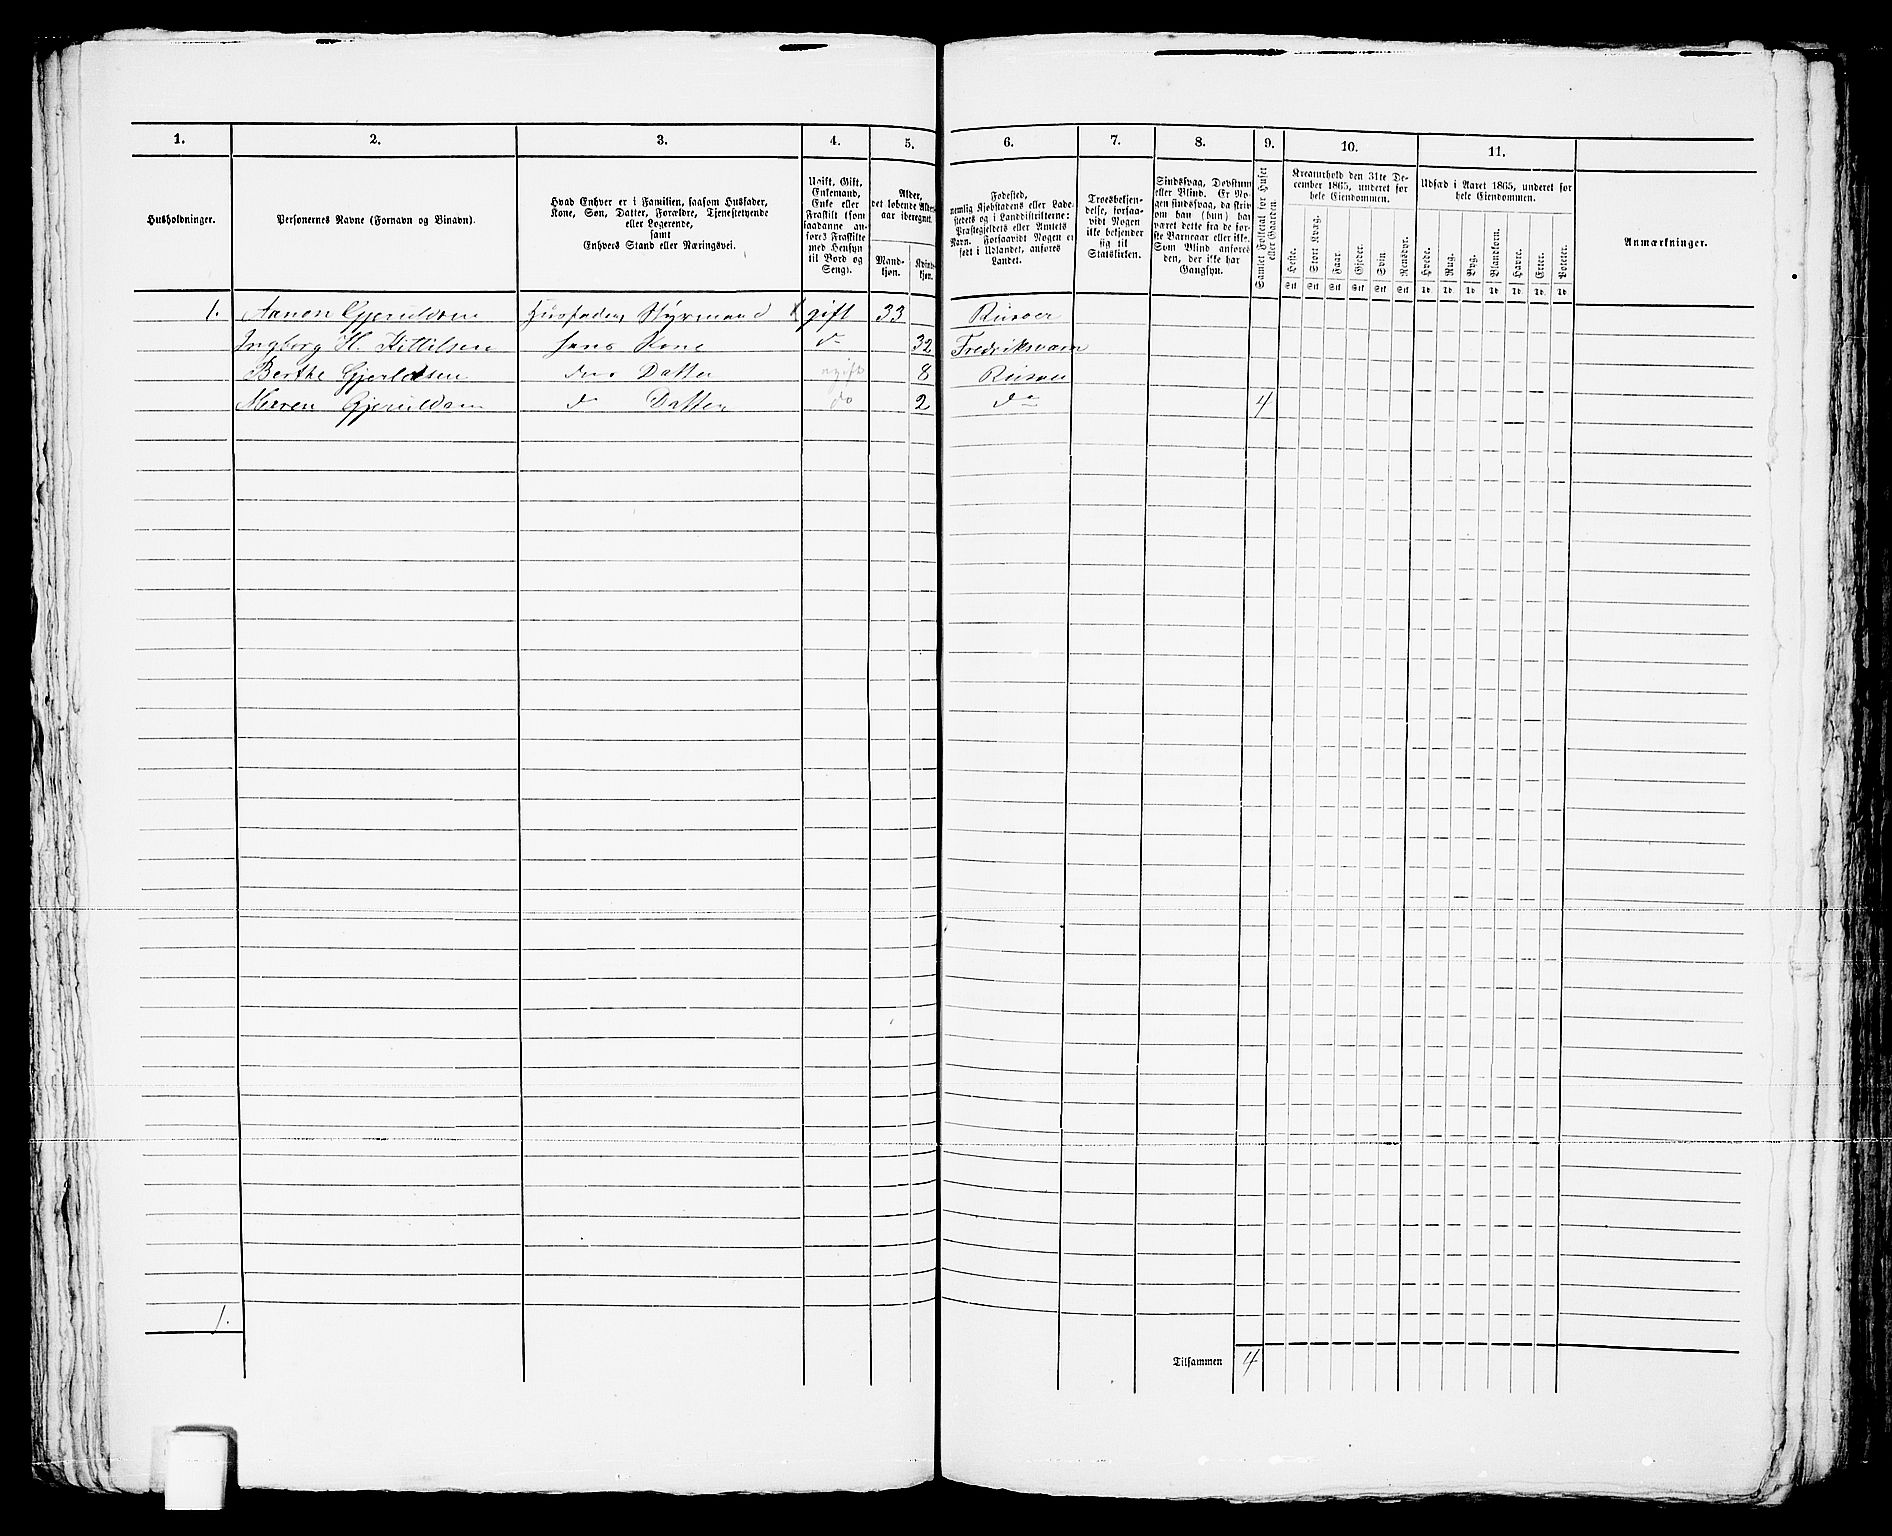 1. 2. 3. 4. 5. 6. 7. 8. 9. 10. 11.
Husholdninger.
Personernes Navne (Fornavn og Binavn).
Hvad Enhver er i Familien, saasom Husfader,
Kone, Søn, Datter, Forældre, Tjenestetyende
eller Logerende,
samt
Enhvers Stand eller Næringsvei.
Ugift, Gift,
Enkemand,
Enke eller
Fraskilt (som
saadanne an-
føres Fraskilte
med Hensyn
til Bord og
Seng).
Alder,
det løbende Alders-
aar iberegnet.
Mand-
kjøn.
Kvind-
kjøn.
Fødested,
nemlig Kjøbstadens eller Lade-
stedets og i Landdistrikterne:
Præstegjeldets eller Amtets
Navn. Forsaavidt Nogen er
født i Udlandet, anføres
Landet.
Troesbekjen-
delse, forsaa-
vidt Nogen
ikke bekjender
sig til
Statskirken.
Sindssvag, Døvstum
eller Blind. Er No-
gen sindssvag, da skriv
om han (hun) har
været dette fra de før-
ste Barneaar eller ikke.
Som Blind anføres
den, der ikke har
Gangsyn.
Samlet Folketal for Huset
eller Gaarden.
Kreaturhold den 31te De-
cember 1865, underet for
hele Eiendommen.
Heste. Stort Kvæg. Faar. Gjeder. Svin. Rensdyr.
Stk Stk Stk Stk Stk Stk
Udsæd i Aaret 1865, underet for
hele Eiendommen.
Hvede. Rug. Byg. Blandkorn. Havre. Erter. Poteter.
Td. Td. Td. Td. Td. Td. Td
Anmærkninger.
1. Aanon Gjeruldsen Husfader, Styrmand gift 33 Risøer
Ingborg H. Kittilsen hans Kone do 32 Fredriksværn
Berthe Gjerldsen deres Datter ugift 8 Risøer
Gjeruldsen do Datter do 2 do 4
1.
Tilsammen 4